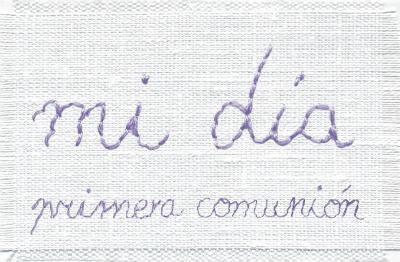 mi día
primera comunión